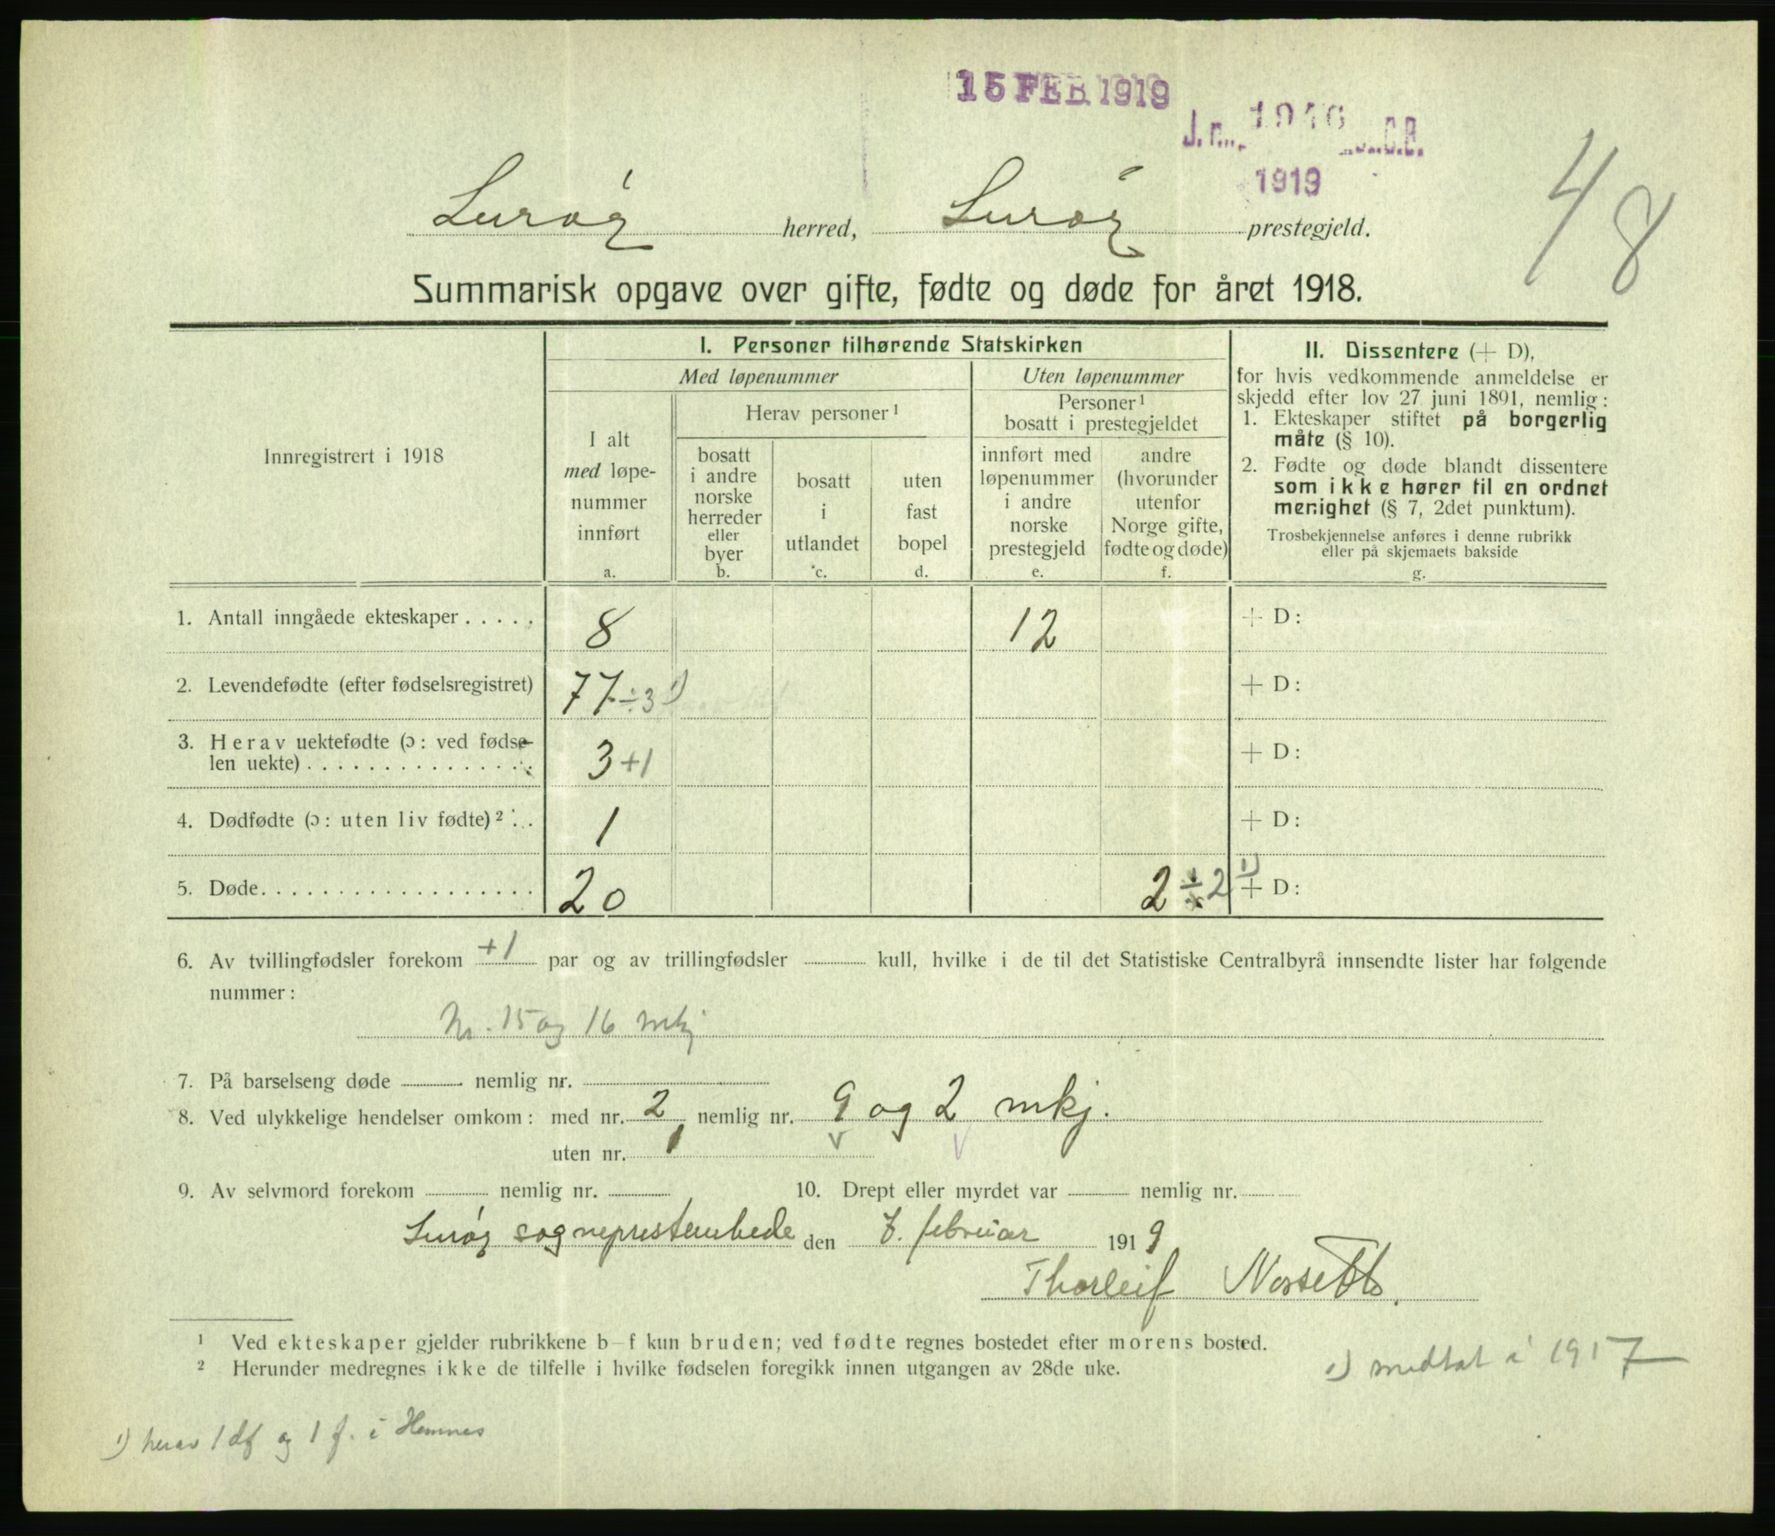 15 FEB 1919
J. n.
1919
48
Lurøy herred, Lurøy prestegjeld.
Summarisk opgave over gifte, fødte og døde for året 1918.
Innregistrert i 1918
I. Personer tilhørende Statskirken
Med løpenummer
Uten løpenummer
I alt
med løpe-
nummer
innført
a.
Herav personer ¹
bosatt
i andre
norske
herreder
eller
byer
b.
bosatt
i
utlandet
c.
uten
fast
bopel
d.
Personer ¹
bosatt i prestegjeldet
innført med
løpenummer
i andre
norske
prestegjeld
e.
andre
(hvorunder
utenfor
Norge gifte,
fødte og døde)
f.
II. Dissentere (+ D),
for hvis vedkommende anmeldelse er
skjedd efter lov 27 juni 1891, nemlig:
1. Ekteskaper stiftet på borgerlig
måte (§ 10).
2. Fødte og døde blandt dissentere
som ikke hører til en ordnet
menighet (§ 7, 2det punktum).
Trosbekjennelse anføres i denne rubrikk
eller på skjemaets bakside
g.
1. Antall inngåede ekteskaper..... 8 12 + D:
2. Levendefødte (efter fødselsregistret) 77 ÷ 3 ¹) + D:
3. Herav uektefødte (ɔ: ved fødse-
len uekte)............... 3 +1 + D:
4. Dødfødte (ɔ: uten liv fødte) ² ... 1 + D:
5. Døde.................. 20 2 ÷ 2 ¹) + D:
6. Av tvillingfødsler forekom +1 par og av trillingfødsler ........ kull, hvilke i de til det Statistiske Centralbyrå innsendte lister har følgende
nummer:
Nr. 15 og 16 mkj
7. På barselseng døde ........ nemlig nr. ........
8. Ved ulykkelige hendelser omkom: med nr. 2 nemlig nr. 9 og 2 mkj.
uten nr. 1
9. Av selvmord forekom ........ nemlig nr. ........ 10. Drept eller myrdet var ........ nemlig nr. ........
Lurøy sogneprestembede den 7. februar 1919
Thorleif
¹ Ved ekteskaper gjelder rubrikkene b–f kun bruden; ved fødte regnes bostedet efter morens bosted.
² Herunder medregnes ikke de tilfelle i hvilke fødselen foregikk innen utgangen av 28de uke.
¹) medtat i 1917
¹) herav 1 df og 1 f. i Hemnes